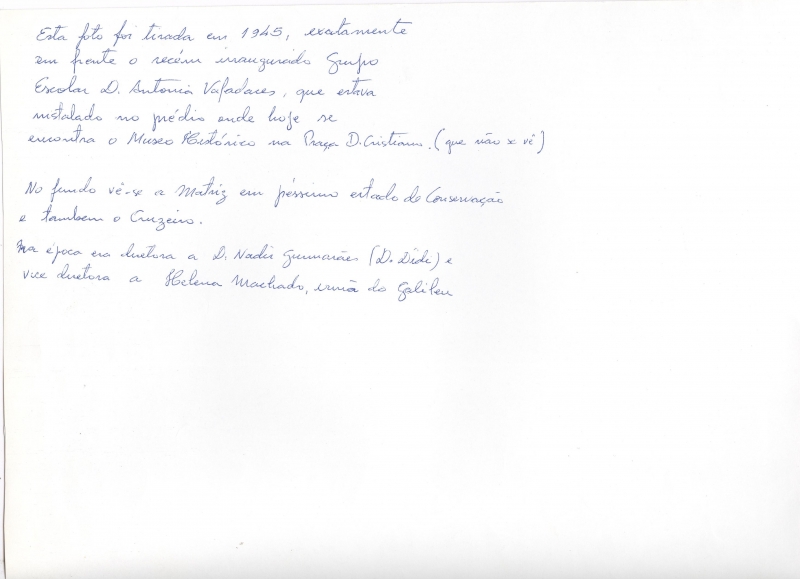 Esta foto foi tirada em 1945, exatamente
em frente o recém inaugurado Grupo
Escolar D. Antonia Valadares, que estava
instalado no prédio onde hoje se
encontra o Museo Histórico na Praça D. Cristiano. (que não se vê)
No fundo vê-se a Matriz em péssimo estado de Conservação
e tambem o Cruzeiro.
Na época era diretora a D. Nadir Guimarães (D. Didi) e
vice diretora a Helena Machado, irmã do Galileu